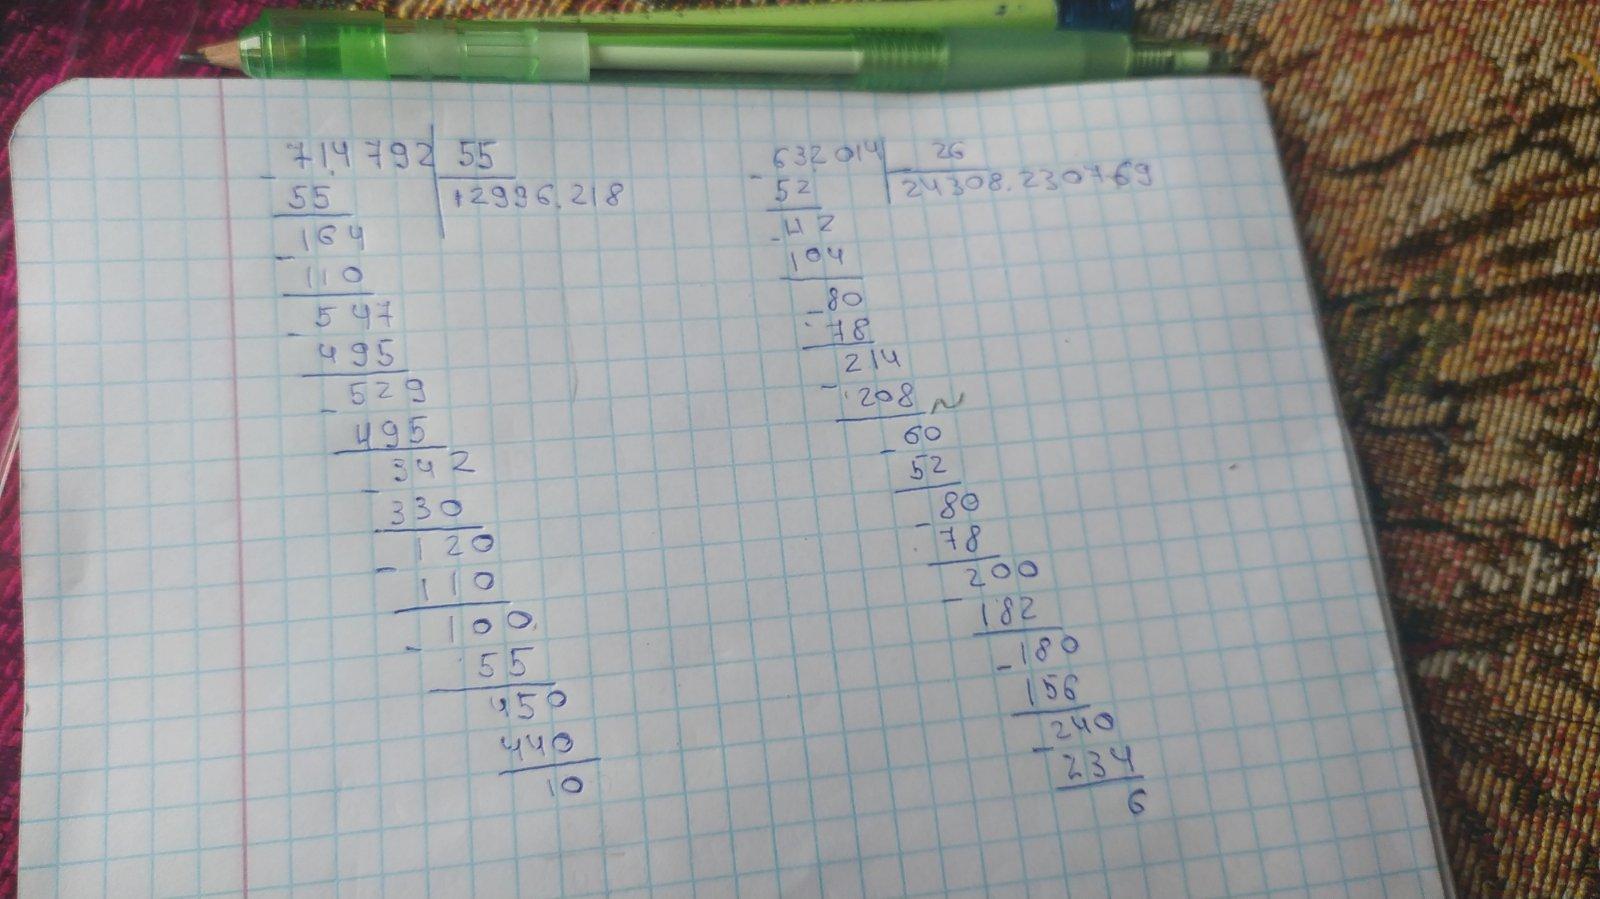 714792 55
- 55 12996.218
164
- 110
547
- 495
529
- 495
342
- 330
120
- 110
100
- 55
450
440
10
632014 26
- 52 24308.230769
112
- 104
80
- 78
214
- 208
60
- 52
80
- 78
200
- 182
180
- 156
240
- 234
6